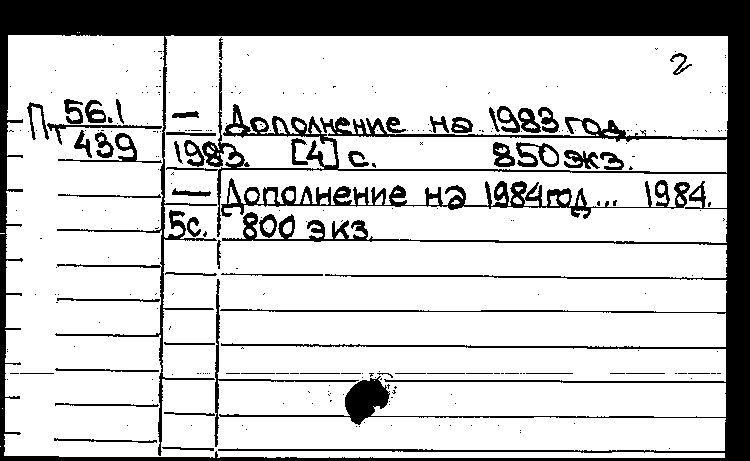 2
Пт 56.1 — Дополнение на 1983 год...
439 1983. [4] с. 850 экз.
— Дополнение на 1984 год... 1984.
5с. 800 экз.